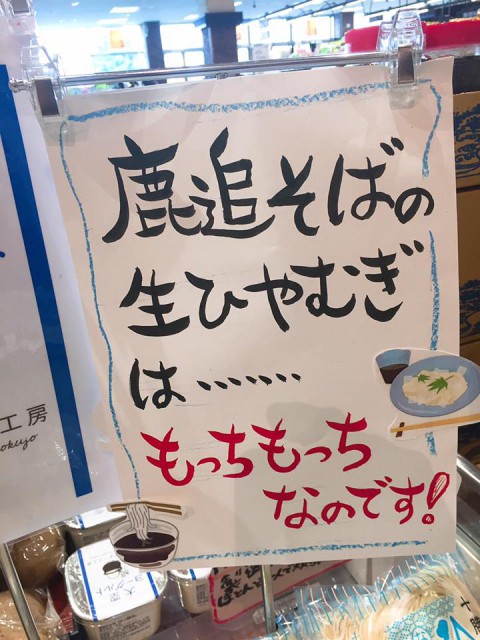 鹿追そばの
生ひやむぎ
は………
もっちもっち
なのです!
工房